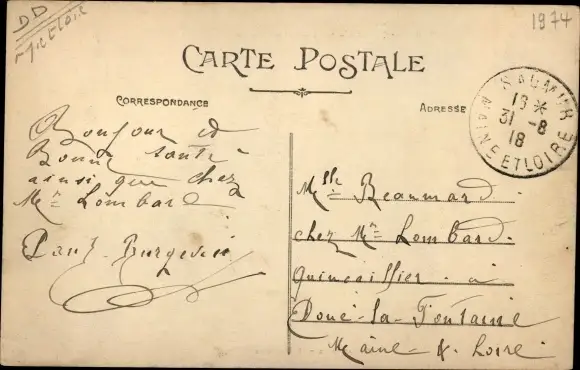 DD
M et Loire
1974
CARTE POSTALE
CORRESPONDANCE
ADRESSE
SAUMUR
13 *
31 -8
18
MAINE ET LOIRE
Bonjour et
Bonne santé
ainsi que chez
Mr Lombard
Paul
Melle Beaumard
chez Mr Lombard.
Quincaillier à
Doué-la-Fontaine
Maine & Loire